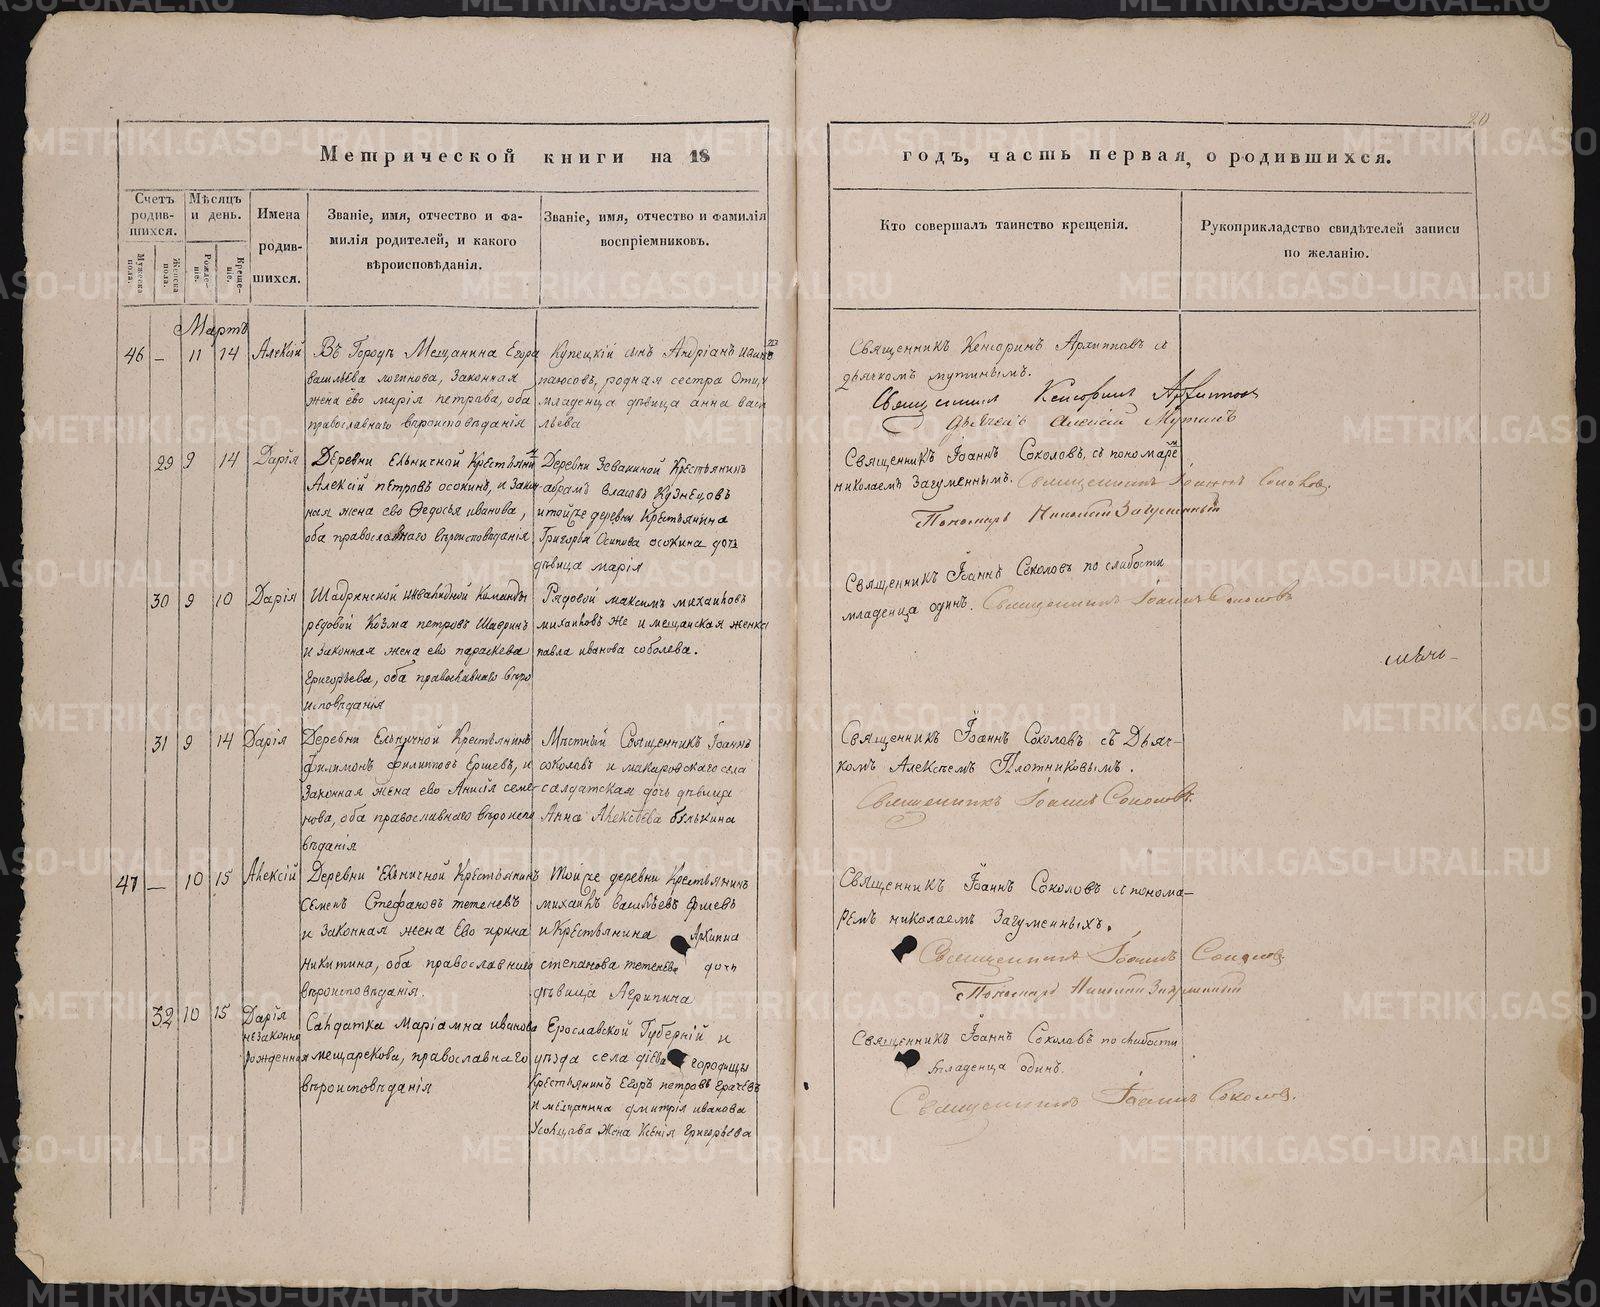 20
Метрической книги на 18
годъ, часть первая, о родившихся.
Счетъ родив-шихся.
Мужеска пола.
Женска пола.
Мѣсяцъ и день.
Рожде-ніе.
Креще-ніе.
Имена родив-шихся.
Званіе, имя, отчество и фа-
милія родителей, и какого
вѣроисповѣданія.
Званіе, имя, отчество и фамилія
воспріемниковъ.
Кто совершалъ таинство крещенія.
Рукоприкладство свидѣтелей записи
по желанію.
Мартъ
46 — 11 14 Алексій
Въ Городѣ Мещанина Егора
васильева логинова, Законная
жена ево марія петрава, оба
православнаго вѣроисповѣданія
Купецкій сынъ Андріанъ
родная сестра
младенца дѣвица анна васи
льева
Священникъ Кенсоринъ Архиповъ с
дьячкомъ мутинымъ.
Священник Кенсорин Архипов
Дьячекъ Алексій Мутинъ
29 9 14 Дарія
Деревни Ельничной Крестьянинъ
Алексій петровъ осокинъ, и Закон
ная жена ево Ѳедосья иванова,
оба православнаго вѣроисповѣданія
Деревни Зевакиной Крестьянинъ
абрамъ власовъ Кузнецовъ
и тойже деревни Крестьянина
Григорья Осипова осокина дочь
дѣвица марія
Священникъ Іоаннъ Соколовъ, съ пономаремъ
николаемъ Загуменнымъ. Священникъ Іоаннъ Соколовъ.
Пономарь Николай Загуменный
30 9 10 Дарія
Шадринской инвалидной Команды
редовой Козма петровъ Шавринъ
и Законная жена ево параскева
григорьева, оба православнаго вѣро
исповѣданія
Рядовой максимъ михаиловъ
михаиловъ же и мещанская женка
павла иванова соболева.
Священникъ Іоаннъ Соколовъ по слабости
младенца одинъ. Священникъ Іоаннъ Соколовъ
31 9 14 Дарія
Деревни Ельничной Крестьянинъ
филимонъ филипповъ Ершевъ, и
Законная жена ево Анисія семе-
нова, оба православнаго вѣроиспо
вѣданія
Мѣстный Священникъ Іоаннъ
соколовъ и макаровскаго села
салдатская дочь дѣвица
Анна Алексѣева бѣлькина
Священникъ Іоаннъ Соколовъ съ Дьяч-
комъ Алексѣемъ Плотниковымъ.
Священникъ Іоаннъ Соколовъ.
47 — 10 15 Алексій
Деревни Ельничной Крестьянинъ
Семенъ Стефановъ тетеневъ
и Законная жена Ево ирина
никитина, оба православнаго
вѣроисповѣданія.
Тойже деревни Крестьянинъ
михаилъ васильевъ Ершевъ
и Крестьянина Архипа
степанова тетенева дочь
дѣвица Агрипина
Священникъ Іоаннъ Соколовъ с понома-
ремъ николаемъ Загуменныхъ.
Священникъ Іоаннъ Соколовъ
Пономарь Николай Загуменный
32 10 15 Дарія
незаконно
рожденная
Салдатка Маріамна иванова
мещарекова, православнаго
вѣроисповѣданія
Ерославской Губерніи и
уѣзда села діева городищы
Крестьянинъ Егоръ петровъ грачевъ
и мещанина дмитрія иванова
Усольцава жена Ксенія григорьева
Священникъ Іоаннъ Соколовъ по слабости
младенца одинъ.
Священникъ Іоаннъ Соколовъ.
METRIKI.GASO-URAL.RU